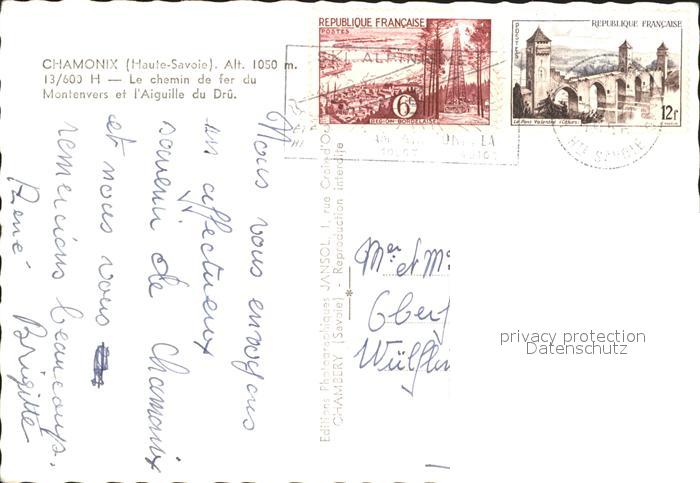 CHAMONIX (Haute-Savoie). Alt. 1050 m.
13/600 H — Le chemin de fer du
Montenvers et l'Aiguille du Drû.
Nous vous envoyons
un affectueux
souvenir de Chamonix
et nous vous
remercions beaucoup.
René - Brigitte
Editions Photographiques JANSOL, 1, rue Croix-d'Or
CHAMBERY (Savoie) - Reproduction interdite
REPUBLIQUE FRANÇAISE
POSTES
6F
REGION BORDELAISE
REPUBLIQUE FRANÇAISE
POSTES
Le Pont Valentré (Cahors)
12F
HTE SAVOIE
Mer et M
Ober
Wülflin
privacy protection
Datenschutz